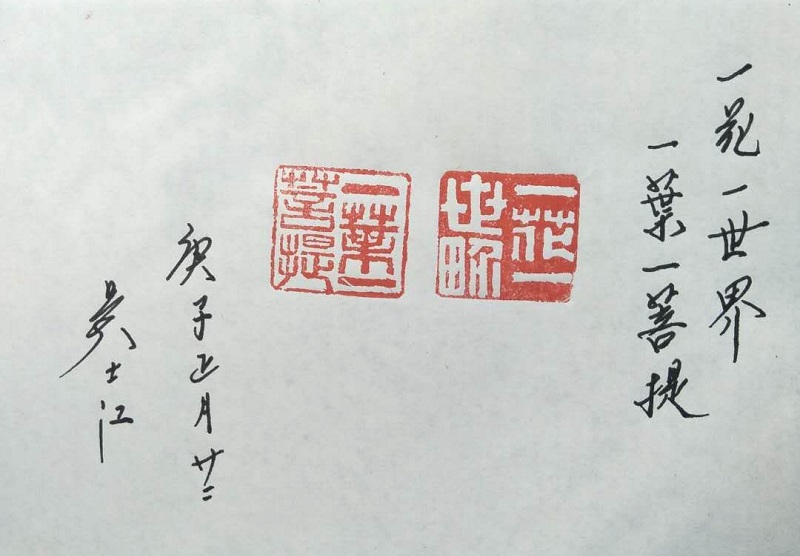 一花一世界
一葉一菩提
一花一
世界
一葉一
菩提
庚子正月廿二
吴士江